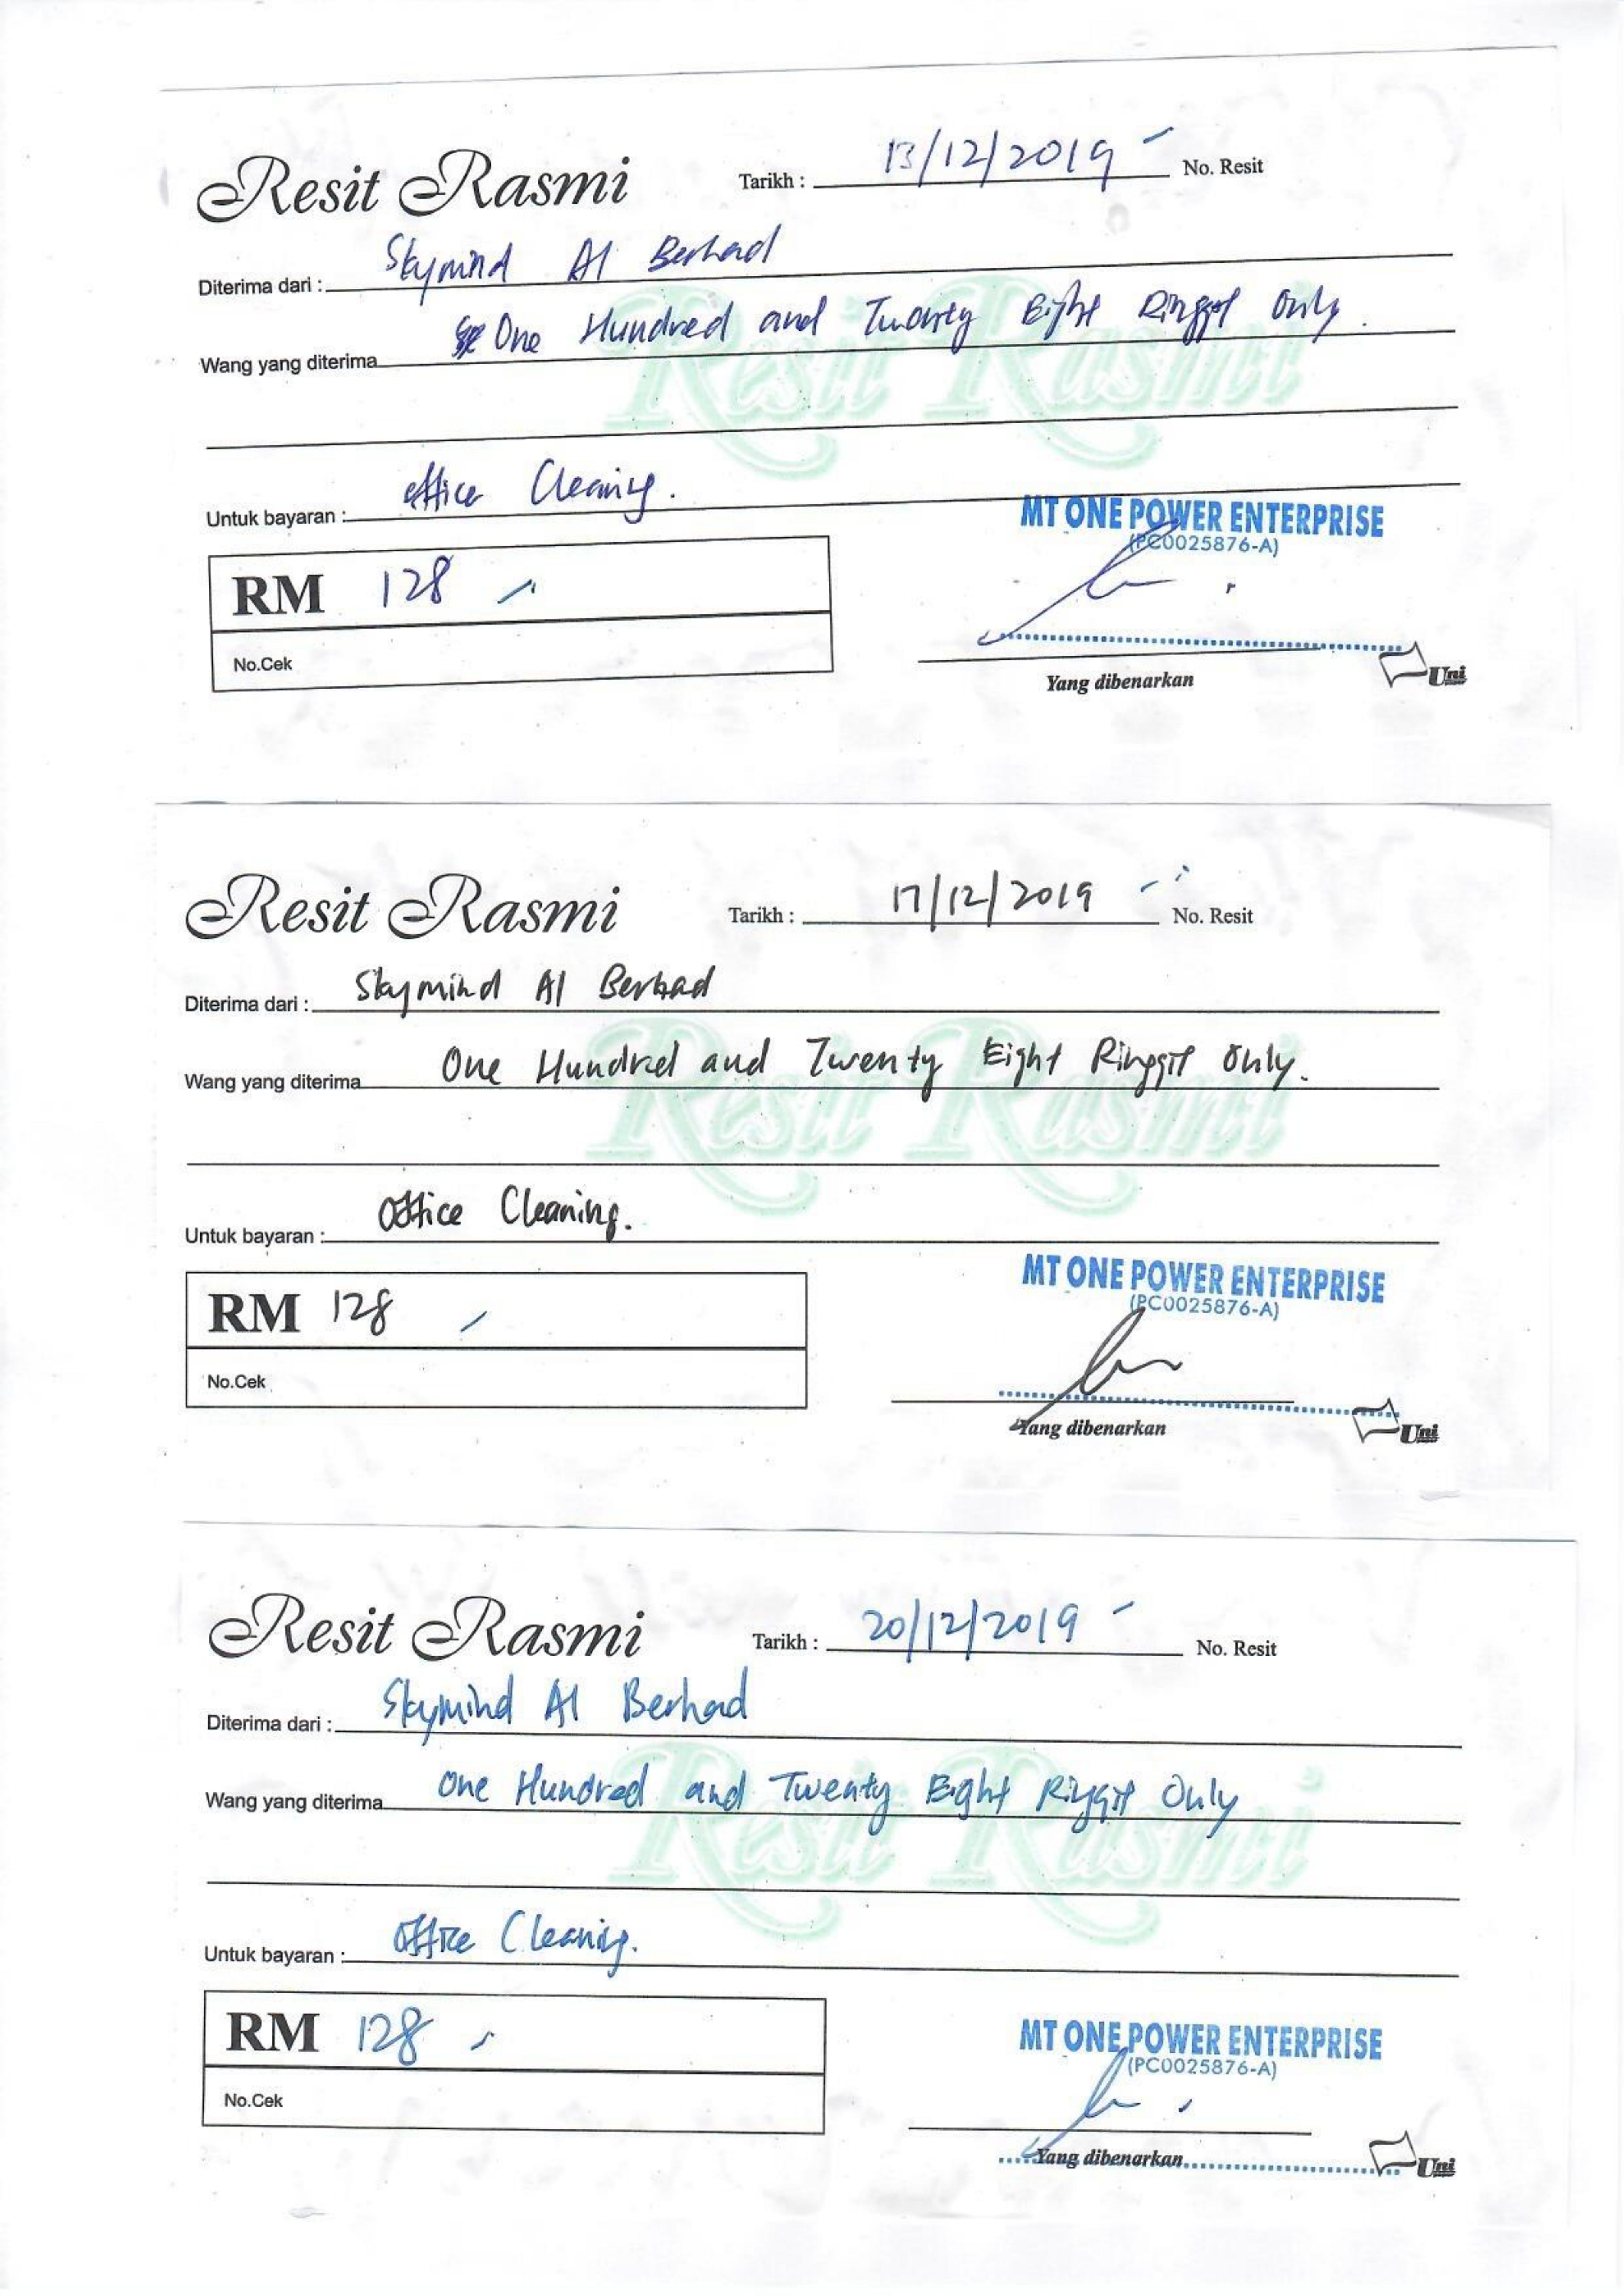 Resit Rasmi Tarikh : 13/12/2019 No. Resit
Diterima dari : Skymind AI Berhad
Wang yang diterima One Hundred and Twenty Eight Ringgit Only.
Resit Rasmi
Untuk bayaran : office Cleaning.
MT ONE POWER ENTERPRISE
(PC0025876-A)
RM 128
No.Cek
Yang dibenarkan
Uni
Resit Rasmi Tarikh : 17/12/2019 No. Resit
Diterima dari : Skymind AI Berhad
Wang yang diterima One Hundred and Twenty Eight Ringgit Only.
Resit Rasmi
Untuk bayaran : Office Cleaning.
MT ONE POWER ENTERPRISE
(PC0025876-A)
RM 128
No.Cek
Yang dibenarkan
Uni
Resit Rasmi Tarikh : 20/12/2019 No. Resit
Diterima dari : Skymind AI Berhad
Wang yang diterima One Hundred and Twenty Eight Ringgit Only
Resit Rasmi
Untuk bayaran : Office Cleaning.
RM 128
MT ONE POWER ENTERPRISE
(PC0025876-A)
No.Cek
Yang dibenarkan
Uni